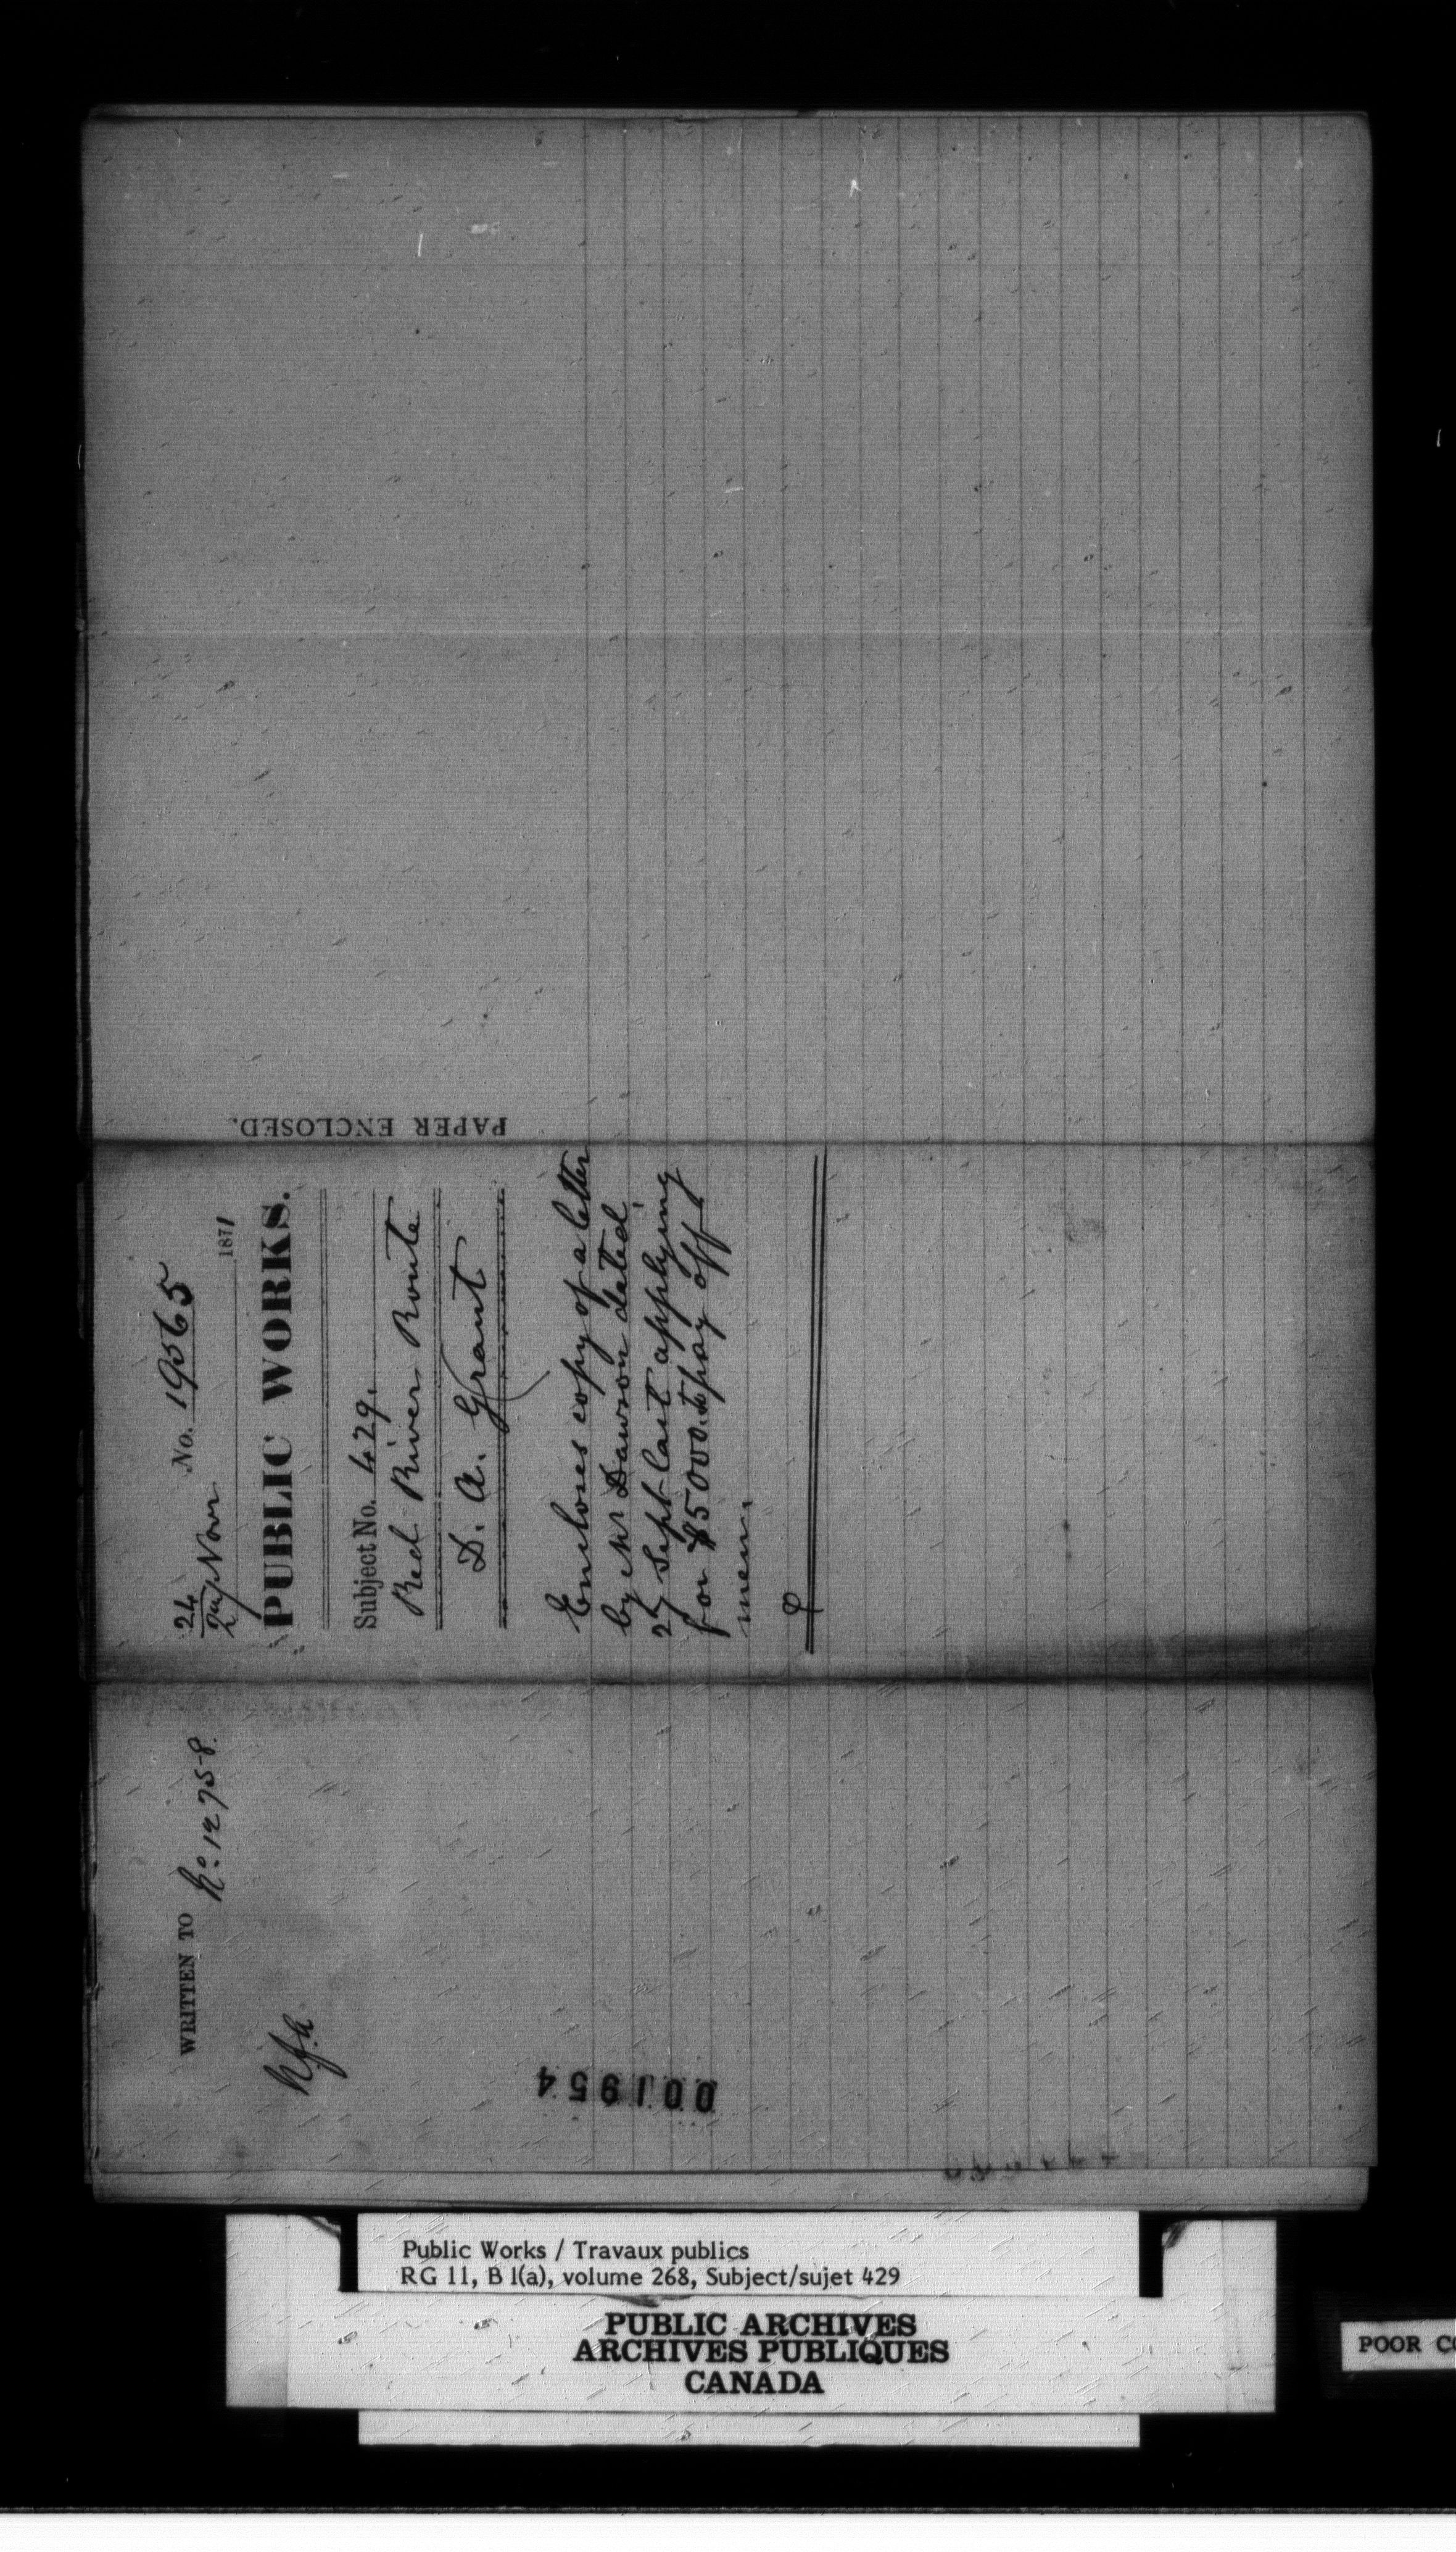 No. 19565
24
27 Novr 1871
PUBLIC WORKS.
Subject No. 429.
Red River Route
D. A. Grant
Encloses copy of a letter
by Mr Dawson dated
27 Sept last applying
for $5000. to pay off
men.
PAPER ENCLOSED.
WRITTEN TO No: 12758.
001954
Public Works / Travaux publics
RG 11, B 1(a), volume 268, Subject/sujet 429
PUBLIC ARCHIVES
ARCHIVES PUBLIQUES
CANADA
POOR CO